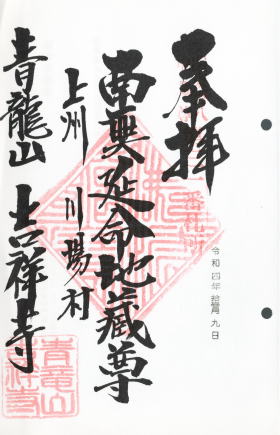 奉拝
番札所
令和四年拾月九日
南無延命地蔵尊
上州 川場村
青龍山 吉祥寺
青竜山
吉祥寺